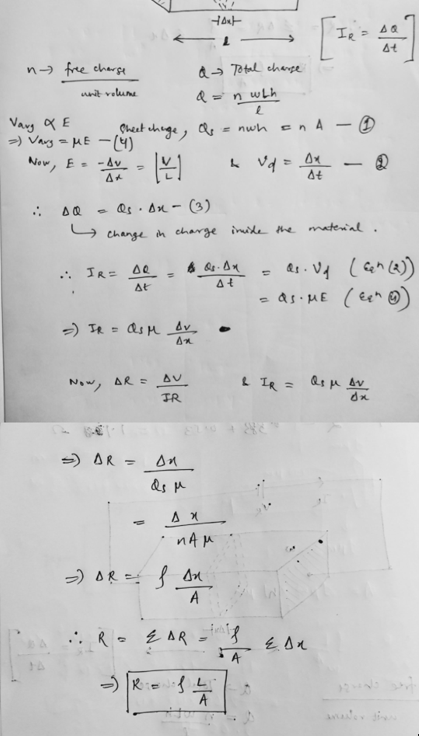 |Δx|
L
[ I_R = ΔQ/Δt ]
n → free charge / unit volume
Q → Total charge
Q = n wLh / L
V_avg ∝ E
Sheet charge, Q_s = nwh = n A — ①
⇒ V_avg = μE — (4)
Now, E = -Δv/Δx = |V/L| & V_d = Δx/Δt — ②
∴ ΔQ = Q_s . Δx — (3)
↳ change in charge inside the material.
∴ I_R = ΔQ/Δt = Q_s . Δx/Δt = Q_s . V_d (Eqn (2))
= Q_s . μE (Eqn ④)
⇒ I_R = Q_s μ Δv/Δx
Now, ΔR = ΔV/IR & I_R = Q_s μ Δv/Δx
⇒ ΔR = Δx / Q_s μ
= Δx / nAμ
⇒ ΔR = ρ Δx/A
∴ R = Σ ΔR = ρ/A Σ Δx
⇒ R = ρ L/A